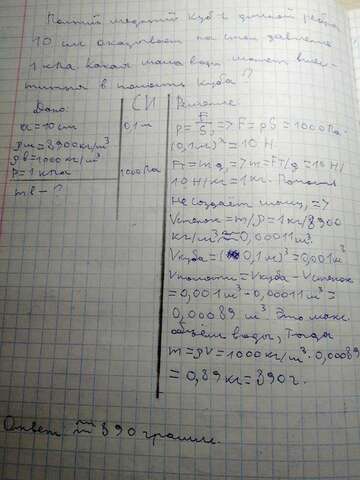 Полый медный куб с длиной ребра
10 см оказывает на стол давление
1 кПа какая масса воды может вмес-
титься в полость куба?
Дано:
a = 10 см
ρм = 8900 кг/м³
ρв = 1000 кг/м³
P = 1 кПа
mв - ?
СИ
0,1 м
1000 Па
Решение:
P = F/S; => F = pS = 1000 Па ·
(0,1 м)² = 10 Н.
Fт = mg; => m = Fт/g = 10 Н/
10 Н/кг = 1 кг. Полость
не создаёт массу, =>
Vстенок = m/ρ = 1 кг/8900
кг/м³ ≈ 0,00011 м³.
Vкуба = (0,1 м)³ = 0,001 м³
Vполости = Vкуба - Vстенок
= 0,001 м³ - 0,00011 м³ =
0,00089 м³. Это макс.
объём воды, Тогда
m = ρV = 1000 кг/м³ · 0,00089
= 0,89 кг = 890 г.
Ответ ≈ 890 грамм.